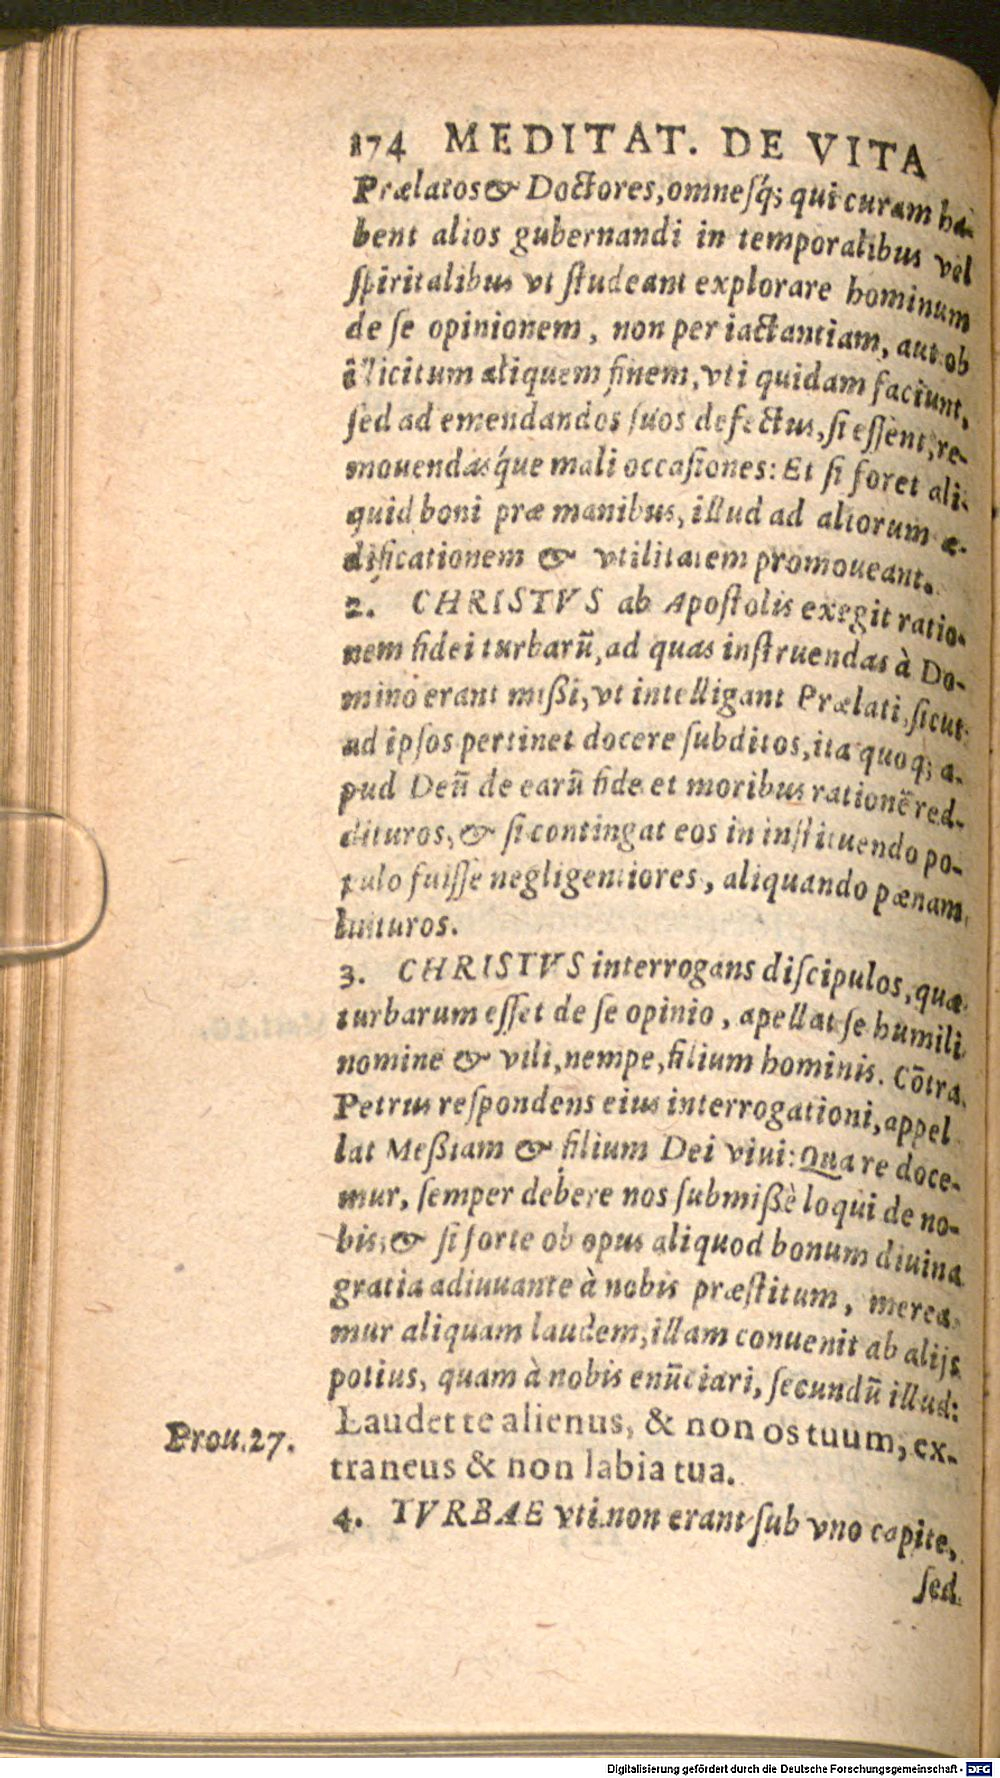 174 MEDITAT. DE VITA
Prælatos & Doctores, omnesq́; qui curam ha-
bent alios gubernandi in temporalibus vel
ſpiritalibus vt ſtudeant explorare hominum
de ſe opinionem, non per iactantiam, aut ob
illicitum aliquem finem, vti quidam faciunt,
ſed ad emendandos ſuos defectus, ſi eſſent, re-
mouendasq́ue mali occaſiones: Et ſi foret ali-
quid boni præ manibus, illud ad aliorum æ-
dificationem & vtilitatem promoueant.
2. CHRISTVS ab Apoſtolis exegit ratio-
nem fidei turbarũ, ad quas inſtruendas à Do-
mino erant mißi, vt intelligant Prælati, ſicut
ad ipſos pertinet docere ſubditos, ita quoq; a-
pud Deũ de earũ fide et moribus rationẽ red-
dituros, & ſi contingat eos in inſtituendo po-
pulo fuiſſe negligentiores, aliquando pœnam
luituros.
3. CHRISTVS interrogans diſcipulos, quæ
turbarum eſſet de ſe opinio, apellat ſe humili
nomine & vili, nempe, filium hominis. Cõtra
Petrus reſpondens eius interrogationi, appel
lat Meßiam & filium Dei viui: Quare doce-
mur, ſemper debere nos ſubmißè loqui de no-
bis, & ſi forte ob opus aliquod bonum diuina
gratia adiuuante à nobis præſtitum, merea-
mur aliquam laudem, illam conuenit ab alijs
potius, quam à nobis enũciari, ſecundũ illud:
Laudet te alienus, & non os tuum, ex-
Prou.27.
traneus & non labia tua.
4. TVRBAE vti non erant ſub vno capite,
ſed
Digitalisierung gefördert durch die Deutsche Forschungsgemeinschaft - DFG